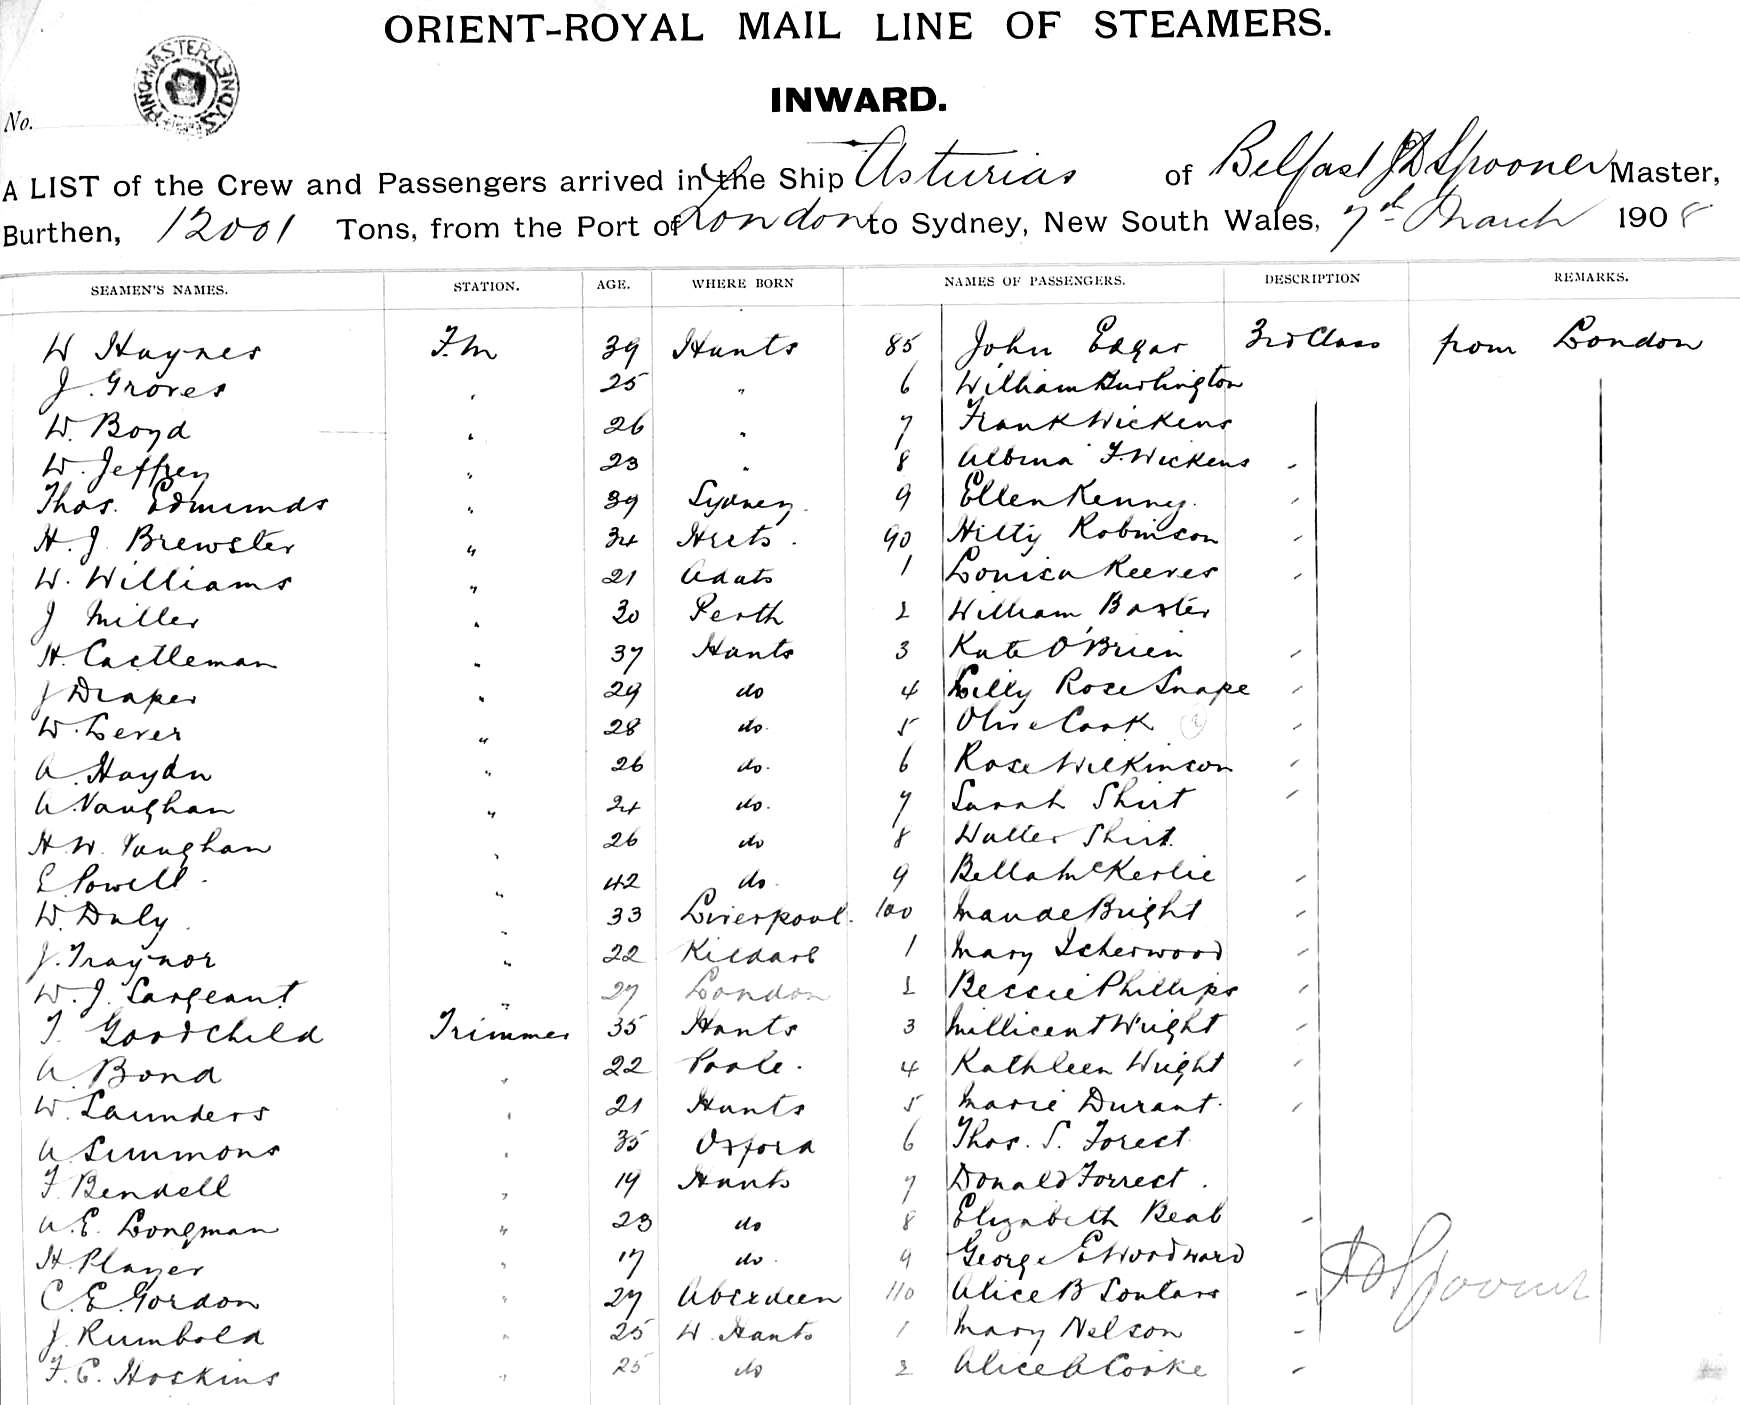 ORIENT-ROYAL MAIL LINE OF STEAMERS.
INWARD.
No.
A LIST of the Crew and Passengers arrived in the Ship Asturias of Belfast J D Spooner Master,
Burthen, 12001 Tons, from the Port of London to Sydney, New South Wales, 7th March 1908
SEAMEN'S NAMES. STATION. AGE. WHERE BORN NAMES OF PASSENGERS. DESCRIPTION REMARKS.
W Haynes F.m 39 Hants 85 John Edgar 3rd Class from London
J. Groves " 25 " 6 William Burlington
W. Boyd " 26 " 7 Frank Wickens
W. Jeffrey " 23 " 8 Albina F. Wickens
Thos. Edmunds " 39 Sydney. 9 Ellen Kenny.
H. J. Brewster " 34 Herts. 90 Hilty Robinson
W. Williams " 21 1 Louisa Reeves
J Miller " 30 Perth 2 William Baxter
H. Castleman " 37 Hants 3 Kate O'Brien
J Draper " 29 do 4 Lilly Rose Snape
W. Lever " 28 do. 5 Olive Cook
A. Haydn " 26 do. 6 Rose Wilkinson
A. Vaughan " 24 do. 7 Sarah Shirt
H. W. Vaughan " 26 do 8 Walter Shirt.
E Powell. " 42 do. 9 Bella McKerlie
W. Daly. " 33 Liverpool. 100 Maude Bright
J. Traynor " 22 Kildare 1 Mary Isherwood
W. J. Sargeant " 27 London 2 Bessie Phillips
T. Goodchild Trimmer 35 Hants 3 Millicent Wright
A. Bond " 22 Poole. 4 Kathleen Wright
W. Saunders " 21 Hants 5 Marie Durant.
A Simmons " 35 Oxford 6 Thos. S. Forest
F. Bendell " 19 Hants 7 Donald Forrest.
A. E. Longman " 23 do 8 Elizabeth Beal
H. Player " 17 do. 9 George E Woodward
C. E. Gordon " 27 Aberdeen 110 Alice B Soutars
J. Rumbold " 25 W. Hants 1 Mary Nelson
F. C. Hoskins " 25 do 2 Alice A Cooke
J D Spooner